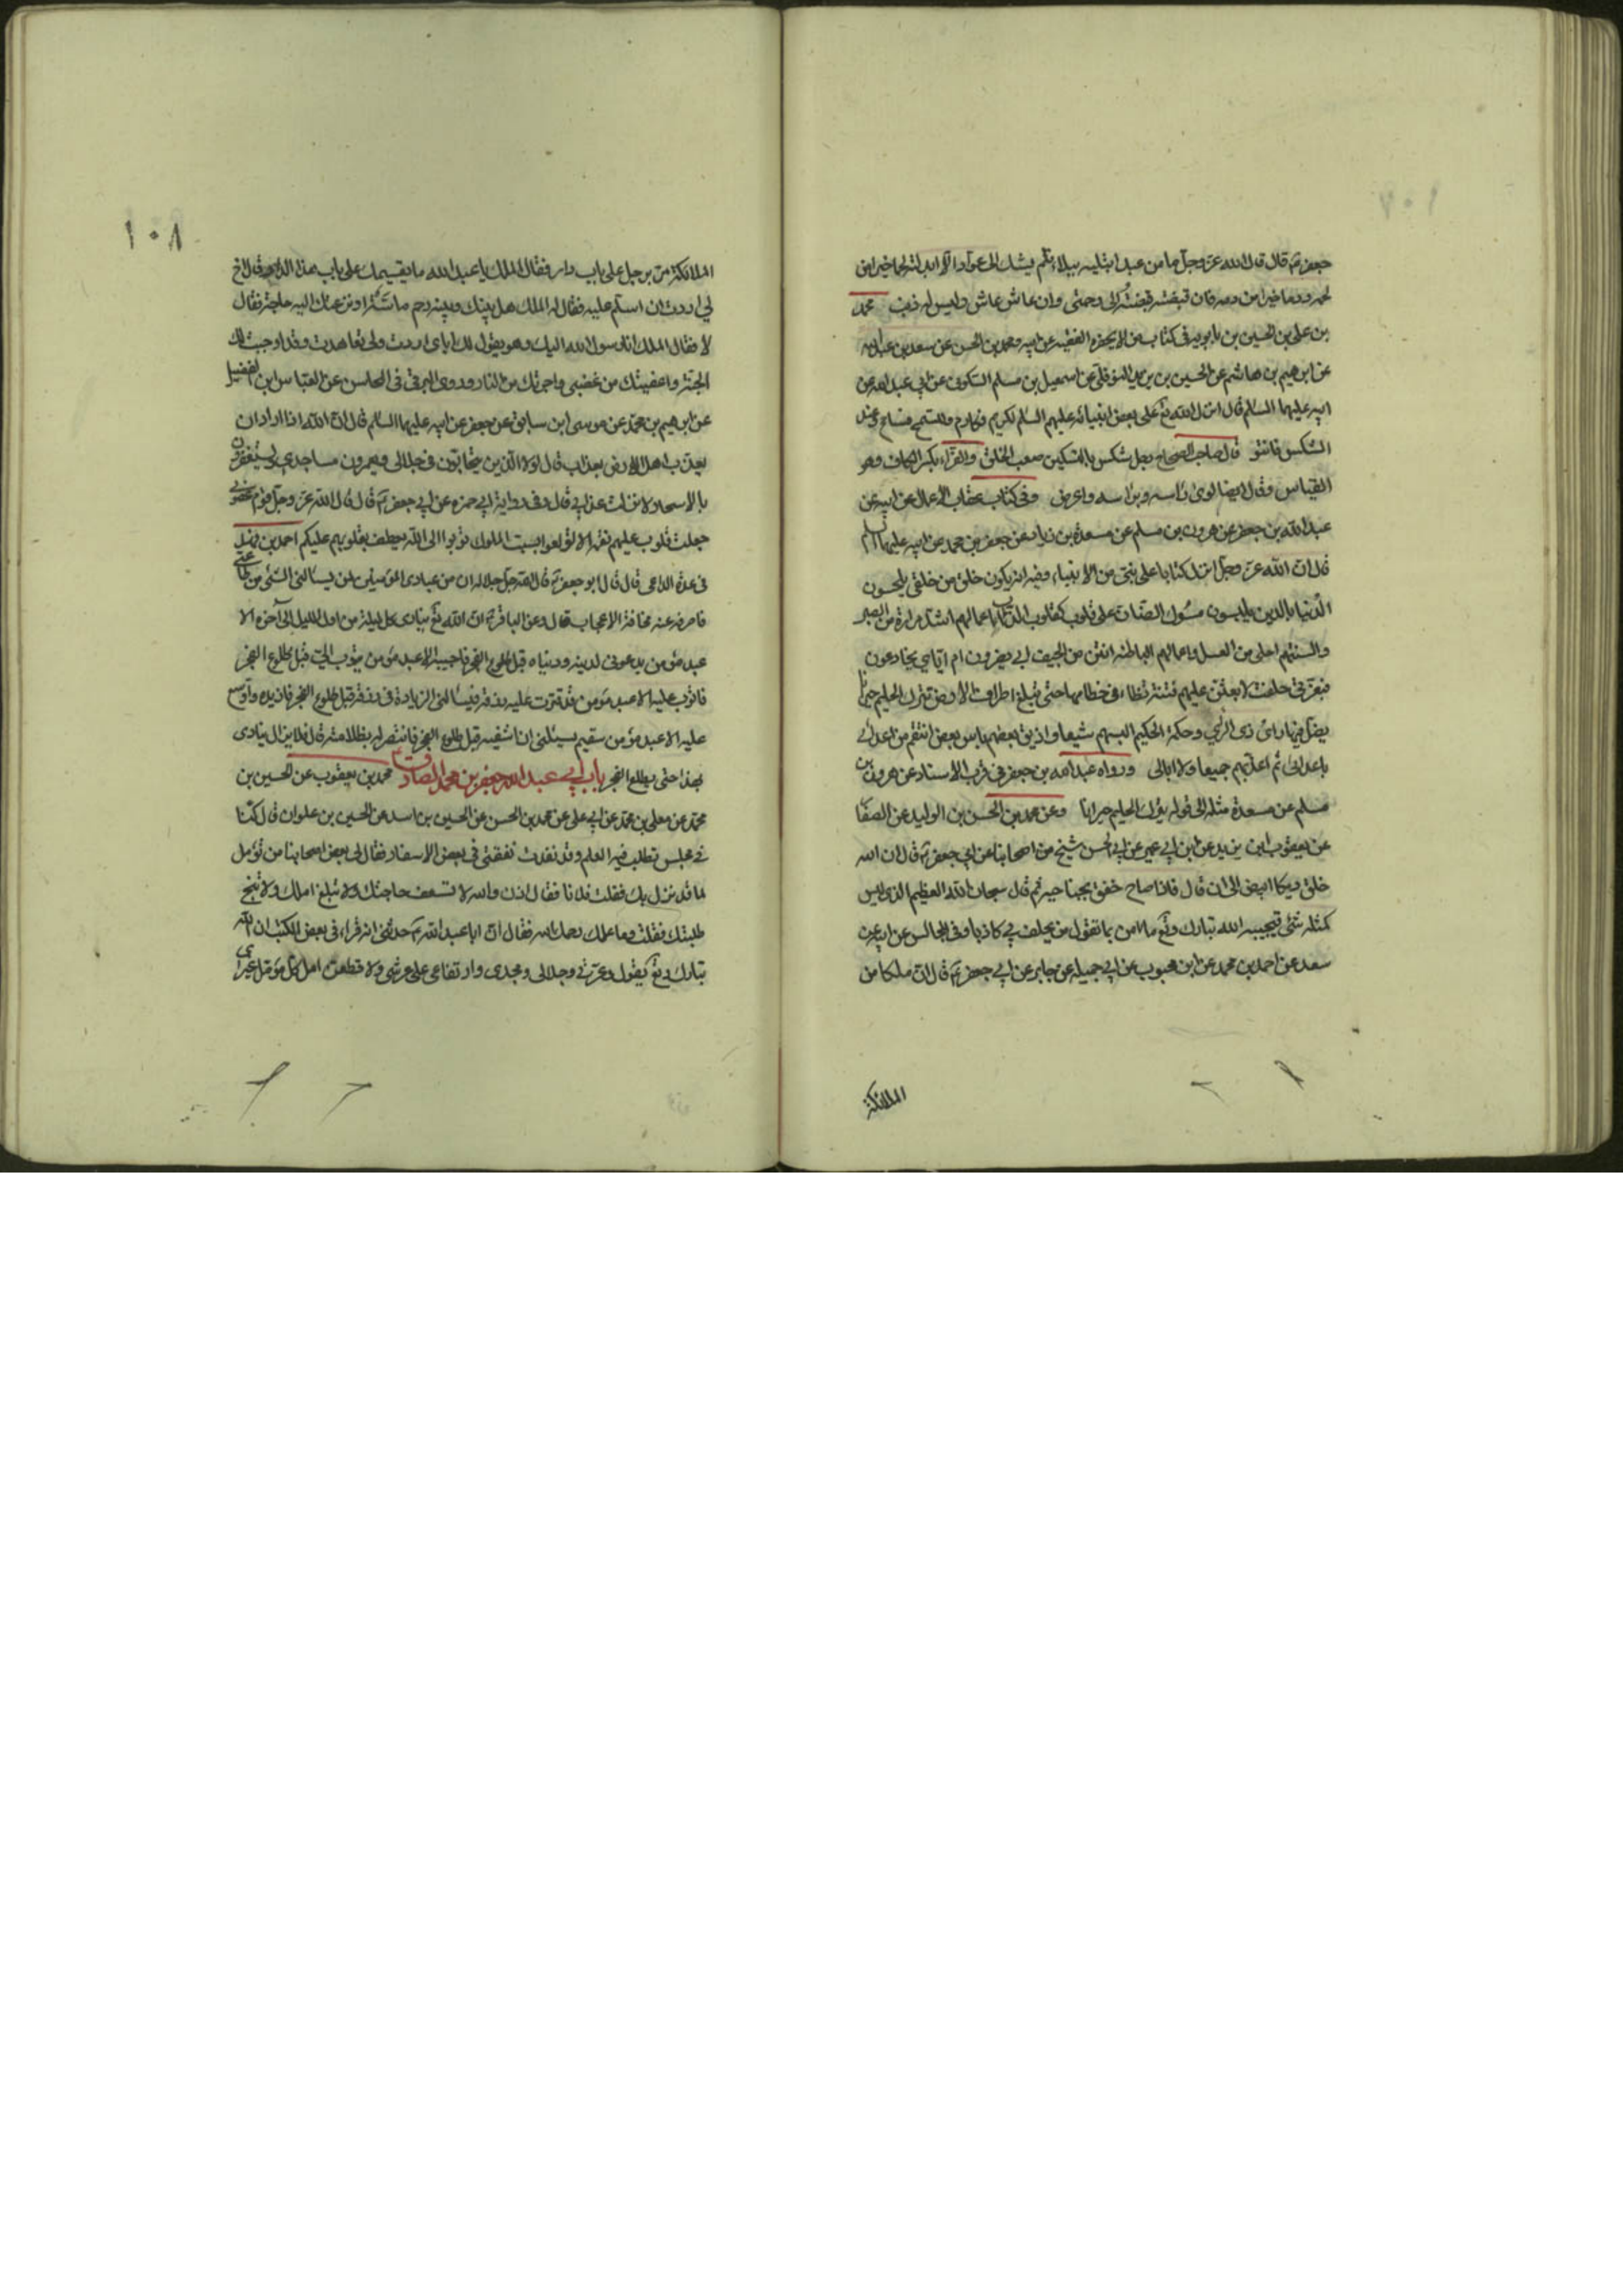 ١٠٧
جعفر ع قال قال الله عز وجل ما من عبد ابتليه ببلاء فلم يشك الى عواده الا ابدلته لحما خيرا من
لحمه ودما خيرا من دمه فان قبضته قبضته الى رحمتى وان عاش عاش وليس له ذنب محمد
بن على بن الحسين بن بابويه فى كتاب من لا يحضره الفقيه عن ابيه ومحمد بن الحسن عن سعد بن عبد الله
عن ابرهيم بن هاشم عن الحسين بن يزيد النوفلى عن اسمعيل بن مسلم السكونى عن ابى عبد الله عن
ابيه عليهما السلام قال انزل الله تع على بعض انبيائه عليهم السلم للكريم فكارم وللسمح فسامح وعند
الشكس فالتو قال صاحب الصحاح رجل شكس بالتسكين صعب الخلق والفراء بكسر الكاف وهو
القياس وقال ايضا لوى راسه وبراسه واعرض وفى كتاب عقاب الاعمال عن ابيه عن
عبد الله بن جعفر عن هرون بن مسلم عن مسعدة بن زياد عن جعفر بن محمد عن ابيه عليهما السلم
قال ان الله عز وجل انزل كتابا على نبى من الانبياء وفيه انه يكون خلق من خلقى يلحسون
الدنيا بالدين يلبسون مسوك الضان على قلوب كقلوب الذئاب اعمالهم اشد مرارة من الصبر
والسنتهم احلى من العسل واعمالهم الباطنه انتن من الجيف ابى يغترون ام اياى يخادعون
فبعزتى حلفت لابعثن عليهم فتنة تطاء فى خطامها حتى تبلغ اطراف الارض تترك الحليم حيرانا
يضل فيها راى ذى الراى وحكمة الحكيم البسهم شيعا واذيق بعضهم باس بعض انتقم من اعدائى
باعدائى ثم اعذبهم جميعا ولا ابالى ورواه عبد الله بن جعفر فى قرب الاسناد عن هرون بن
مسلم عن مسعدة مثله الى قوله يترك الحليم حيرانا وعن محمد بن الحسن بن الوليد عن الصفار
عن يعقوب بن يزيد عن ابن ابى عمير عن ابى الحسن شيخ من اصحابنا عن ابى جعفر ع قال ان الله
خلق ديكا ابيض الى ان قال فاذا صاح خفق بجناحيه ثم قال سبحان الله العظيم الذى ليس
كمثله شئ فيجيبه الله تبارك وتع ما امن بما تقول من يحلف بى كاذبا وفى المجالس عن ابيه عن
سعد عن احمد بن محمد عن ابن محبوب عن ابى جميله عن جابر عن ابى جعفر ع قال ان ملكا من
الملائكة
١٠٨
الملائكة مر برجل على باب دار فقال الملك يا عبد الله ما يقيمك على باب هذا الدار فقال اخ
لى اردت ان اسلم عليه فقال له الملك هل بينك وبينه رحم ماسة او نزعتك اليه حاجة فقال
لا فقال الملك انا رسول الله اليك وهو يقول لك اياى اردت ولى تعاهدت وقد اوجبت لك
الجنة واعفيتك من غضبى واجرتك من النار وروى البرقى فى المحاسن عن العباس ابن الفضيل
عن ابرهيم بن محمد عن موسى ابن سابق عن جعفر عن ابيه عليهما السلام قال ان الله اذا اراد ان
يعذب اهل الارض بعذاب قال لولا الذين يتحابون فى جلالى ويعمرون مساجدى ويستغفرون
بالاسحار لانزلت عذابى قال وفى رواية ابى حمزه عن ابى جعفر ع قال قال الله عز وجل قوم عصونى
جعلت قلوب عليهم نقمة الا لا تولعوا بسبت الملوك توبوا الى الله يعطف بقلوبهم عليكم احمد بن فهد
فى عدة الداعى قال قال ابو جعفر ع قال الله جل جلاله ان من عبادى المؤمنين لمن يسالنى الشئ من طاعتى
فاصرفه عنه مخافة الاعجاب قال وعن الباقر ع ان الله تع ينادى كل ليلة من اول الليل الى آخره الا
عبد مؤمن يدعونى لدينه ودنياه قبل طلوع الفجر فاجيبه الا عبد مؤمن يتوب الى قبل طلوع الفجر
فاتوب عليه الا عبد مؤمن قد قترت عليه رزقه فيسالنى الزيادة فى رزقه قبل طلوع الفجر فازيده واوسع
عليه الا عبد مؤمن سقيم يسئلنى ان اشفيه قبل طلوع الفجر فانتصر له بظلامته قال فلا يزال ينادى
بهذا حتى يطلع الفجر باب ابى عبد الله جعفر بن محمد الصادق ع محمد بن يعقوب عن الحسين بن
محمد عن معلى بن محمد عن ابى على عن محمد بن الحسن عن الحسين بن اسد عن الحسين بن علوان قال كنا
فى مجلس نطلب فيه العلم وقد نفدت نفقتى فى بعض الاسفار فقال لى بعض اصحابنا من تؤمل
لما قد نزل بك فقلت فلانا فقال اذن والله لا تسعف حاجتك ولا تبلغ املك ولا تنجح
طلبتك فقلت وما علمك رحمك الله فقال ان ابا عبد الله ع حدثنى انه قراء فى بعض الكتب ان الله
تبارك وتع يقول وعزتى وجلالى ومجدى وارتفاعى على عرشى ولا قطعن امل كل مؤمل غيرى